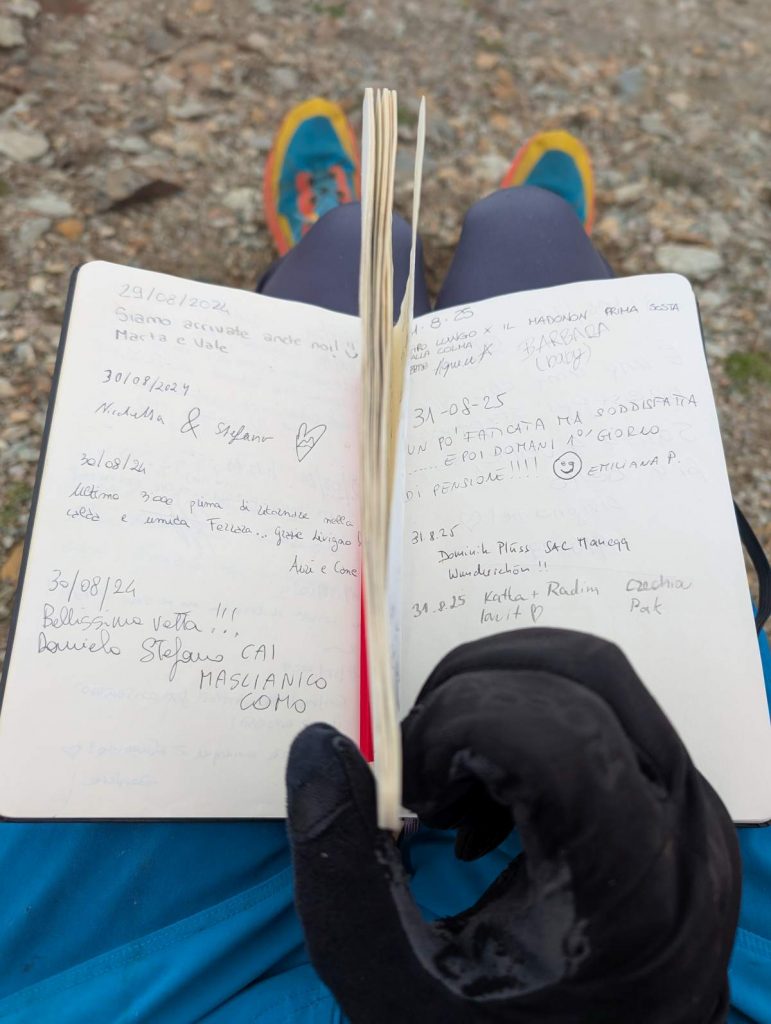 29/08/2024
Siamo arrivate anche noi!
Marta e Vale
30/08/2024
& Stefano
30/08/24
Ultimo 3000 prima di ritornare nella
calda e umida Ferrara... Livigno
e
30/08/24
Bellissima vetta!!!
Daniele Stefano CAI
MASLIANICO
COMO
1.8.25
LUNGO X IL MADONON PRIMA SOSTA
ALLA COLMA
BARBARA
(baby)
31-08-25
UN PO' FATICATA MA SODDISFATTA
...... E POI DOMANI 1° GIORNO
DI PENSIONE!!!! EMILIANA P.
31.8.25
Dominik Plüss SAC Manegg
Wunderschön !!
31.8.25 Katka + Radim Czechia